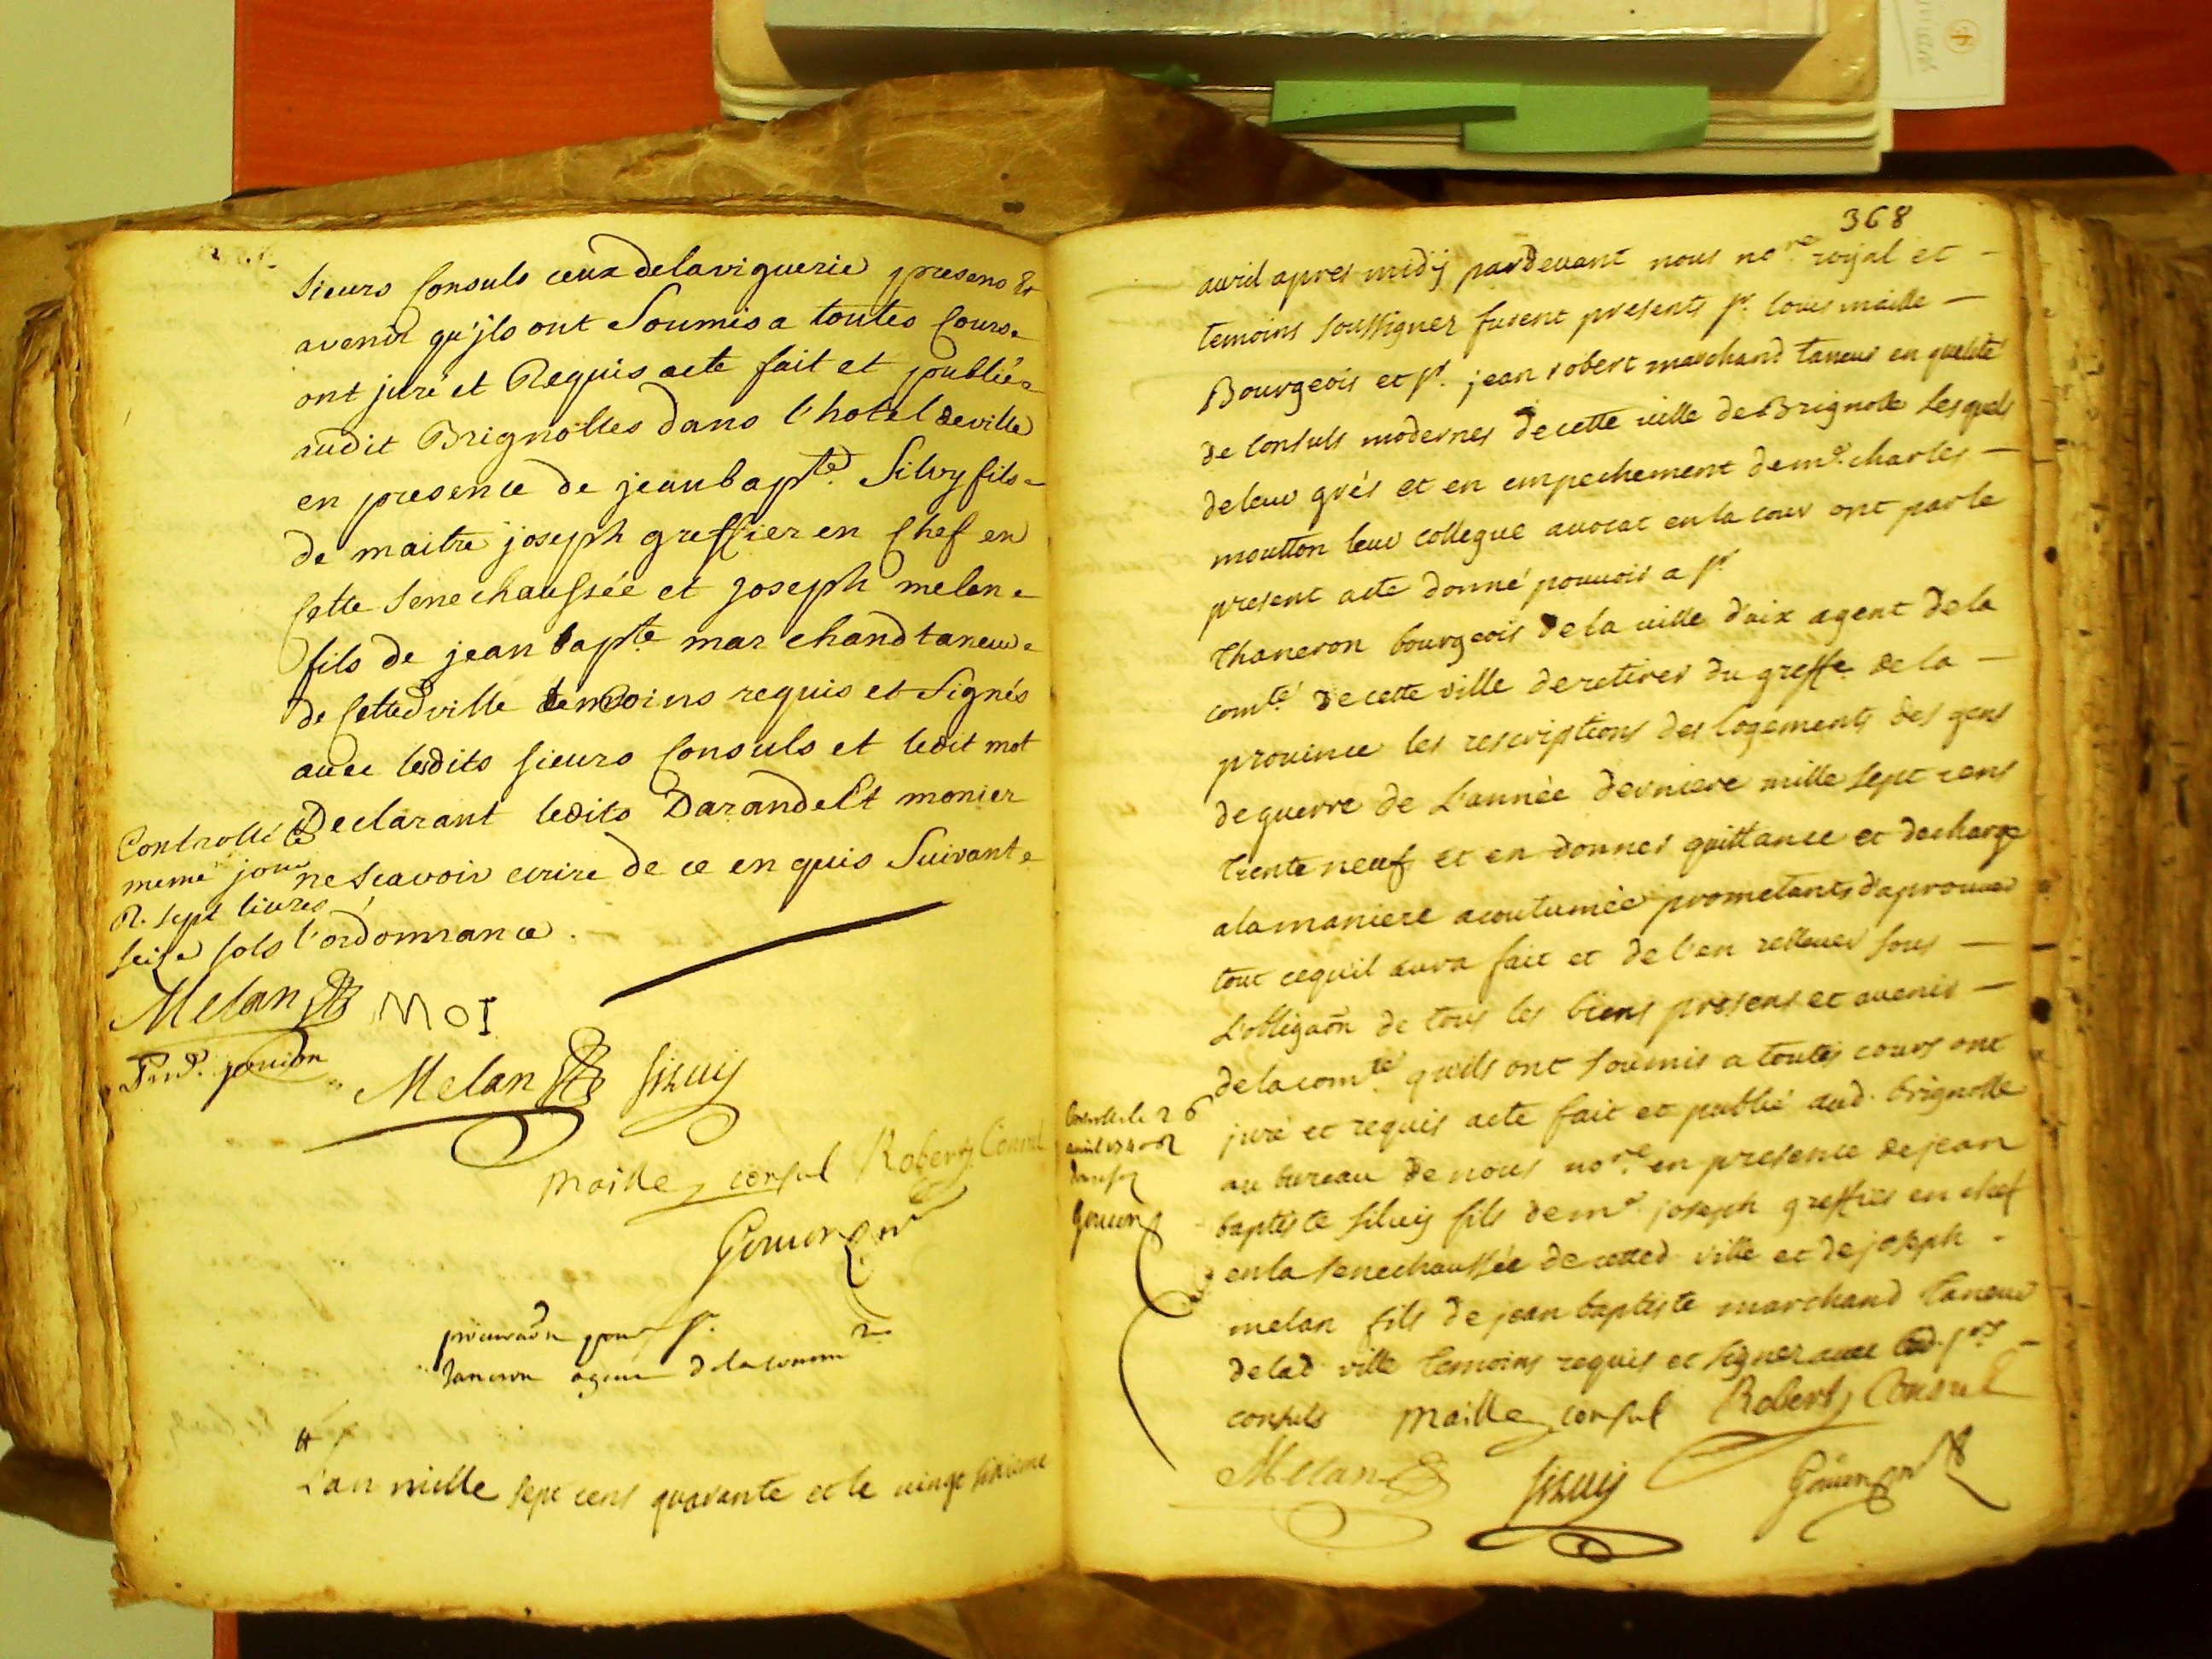 sieurs Consuls ceux delaviguerie presens &
avenir qu'jls ont Soumis a toutes Cours
ont juré et Requis acte fait et publié
audit Brignolles dans l'hotel deville
en presence de jeanbapte. Silvy fils
de maitre joseph greffier en Chef en
Cette Senechaussée et joseph melan
fils de jean bapte marchand taneur
de Cetted ville temoins requis et Signés
avec lesdits sieurs Consuls et ledit mot
Declarant ledits Darandel et monier
ne scavoir ecrire de ce enquis Suivant
l'ordonnance.
Controllé le
meme jour
R. sept livres
seise sols
Melan
MOI
Melan Siluy
Maille consul Robert Consul
procuraon pour sr.
taneron agent delacomm
L'an mille sept cens quarante et le vingt sixieme
368
avril apres midy pardevant nous nore. royal et
temoins soussignez furent presents sr. louis maille
Bourgeois et sr. jean robert marchand taneur en qualité
de Consuls modernes decette ville de Brignolle Lesquels
deleur grés et en empechement deme. charles
moutton leur collegue avocat enla cour ont par le
present acte donné pouvoir a sr
Thaneron bourgeois dela ville d'aix agent dela
comté de cette ville deretirer du greffe dela
province les rescriptions des logements des gens
deguerre de L'année derniere mille sept cens
trente neuf et en donner quittance et decharge
alamaniere acoutumée prometants d'aprouver
tout cequil aura fait et de l'en rellever sous
L'obligaon de tous les biens presens et avenir
delacomté quils ont soumis a toutes cours ont
juré et requis acte fait et publié aud. brignolle
au bureau de nous nore. en presence dejean
baptiste siluy fils deme. joseph greffier en chef
enla senechaussée de cetted ville et dejoseph
melan fils de jean baptiste marchand taneur
delad ville temoins requis et signez avec lesd. srs
consuls Maille consul Robert Consul
Controllé le 26
avril 1740
Melan Siluy